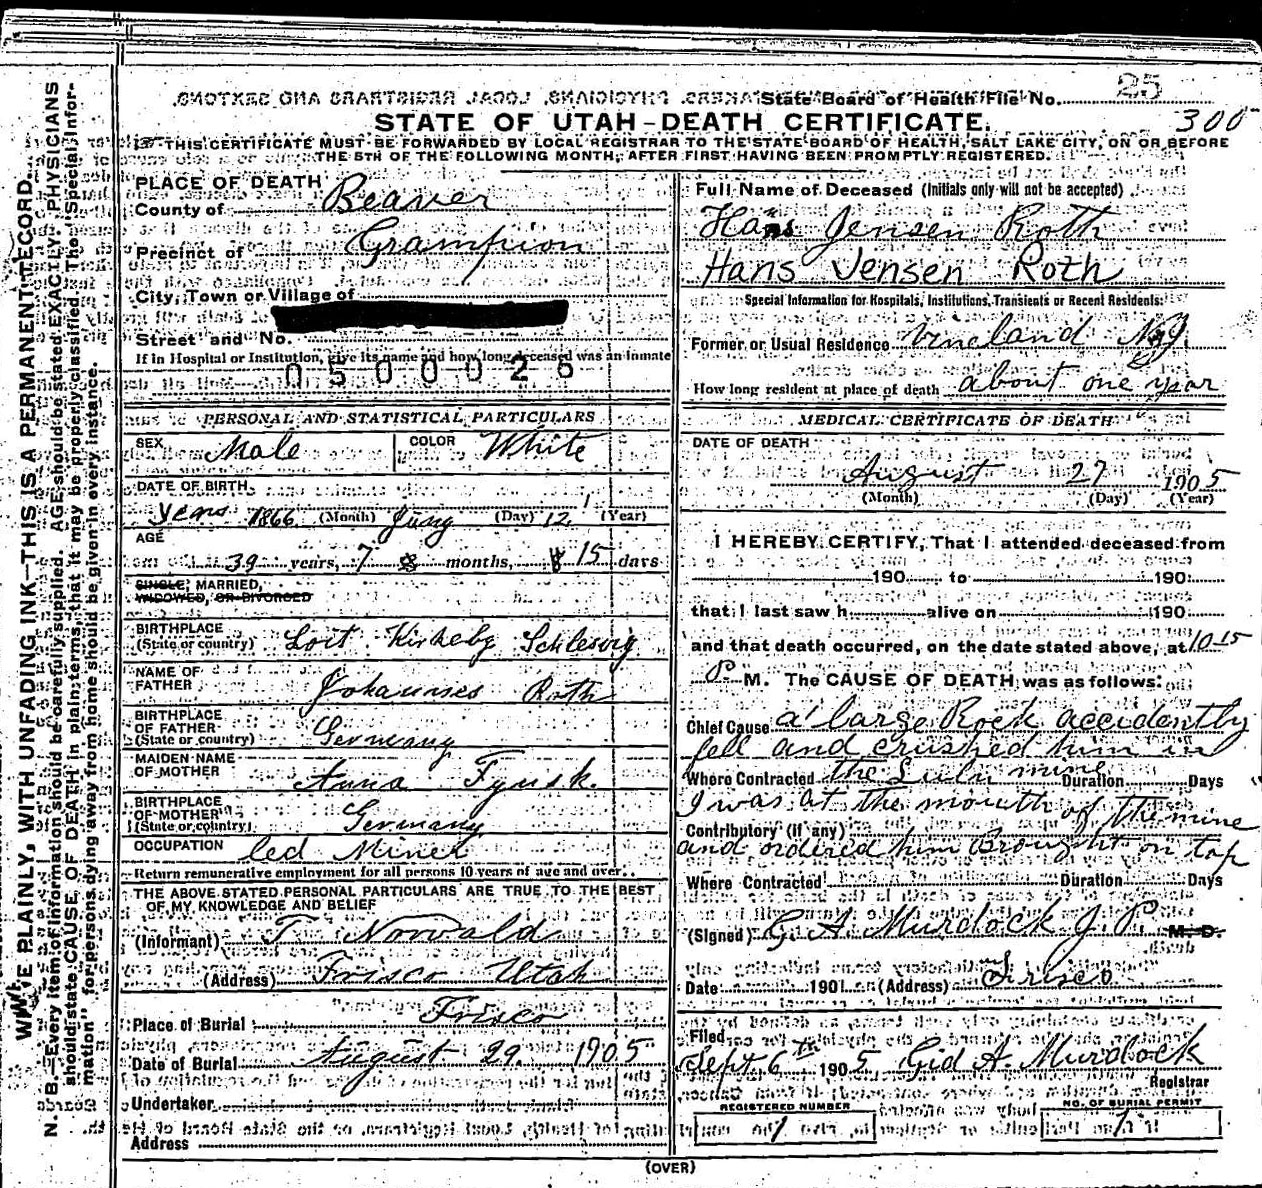 State Board of Health File No. 25
300
STATE OF UTAH-DEATH CERTIFICATE.
THIS CERTIFICATE MUST BE FORWARDED BY LOCAL REGISTRAR TO THE STATE BOARD OF HEALTH, SALT LAKE CITY, ON OR BEFORE
THE 5TH OF THE FOLLOWING MONTH, AFTER FIRST HAVING BEEN PROMPTLY REGISTERED.
WRITE PLAINLY, WITH UNFADING INK—THIS IS A PERMANENT RECORD.
N. B.—Every item of information should be carefully supplied. AGE should be stated EXACTLY. PHYSICIANS
should state CAUSE OF DEATH in plain terms, that it may be properly classified. The "Special Infor-
mation" for persons dying away from home should be given in every instance.
PLACE OF DEATH
County of Beaver
Precinct of Grampion
City, Town or Village of
Street and No.
If in Hospital or Institution, give its name and how long deceased was an inmate
0500026
PERSONAL AND STATISTICAL PARTICULARS
SEX Male COLOR White
DATE OF BIRTH
years 1866 (Month) (Day) 12 (Year)
AGE
39 years, 7 months, 15 days
SINGLE, MARRIED,
WIDOWED, OR DIVORCED
BIRTHPLACE
(State or country) Loit Kirkeby Schlesvig
NAME OF
FATHER Johannses Roth
BIRTHPLACE
OF FATHER
(State or country) Germany
MAIDEN NAME
OF MOTHER Anna
BIRTHPLACE
OF MOTHER
(State or country) Germany
OCCUPATION Miner
Return remunerative employment for all persons 10 years of age and over.
THE ABOVE STATED PERSONAL PARTICULARS ARE TRUE TO THE BEST
OF MY KNOWLEDGE AND BELIEF
(Informant) T Norvald
(Address) Frisco Utah
Place of Burial Frisco
Date of Burial August 29. 1905
Undertaker
Address
Full Name of Deceased (Initials only will not be accepted)
Hans Jensen Roth
Hans Jensen Roth
Special Information for Hospitals, Institutions, Transients or Recent Residents:
Former or Usual Residence Vineland N.J.
How long resident at place of death about one year
MEDICAL CERTIFICATE OF DEATH
DATE OF DEATH
August 27 1905
(Month) (Day) (Year)
I HEREBY CERTIFY, That I attended deceased from
190 to 190
that I last saw h alive on 190
and that death occurred, on the date stated above, at 10-15
P. M. The CAUSE OF DEATH was as follows:
Chief Cause a large Rock accidently
fell and crushed him in
Where Contracted the Lulu mine Duration Days
I was at the mouth of the mine
Contributory (if any)
and ordered him Brought on top
Where Contracted Duration Days
(Signed) G. A. Murdock J. P. M. D.
Date 190 (Address) Frisco
Filed
Sept 6th 1905, Gid A. Murdock
Registrar
REGISTERED NUMBER
1
NO. OF BURIAL PERMIT
1
(OVER)